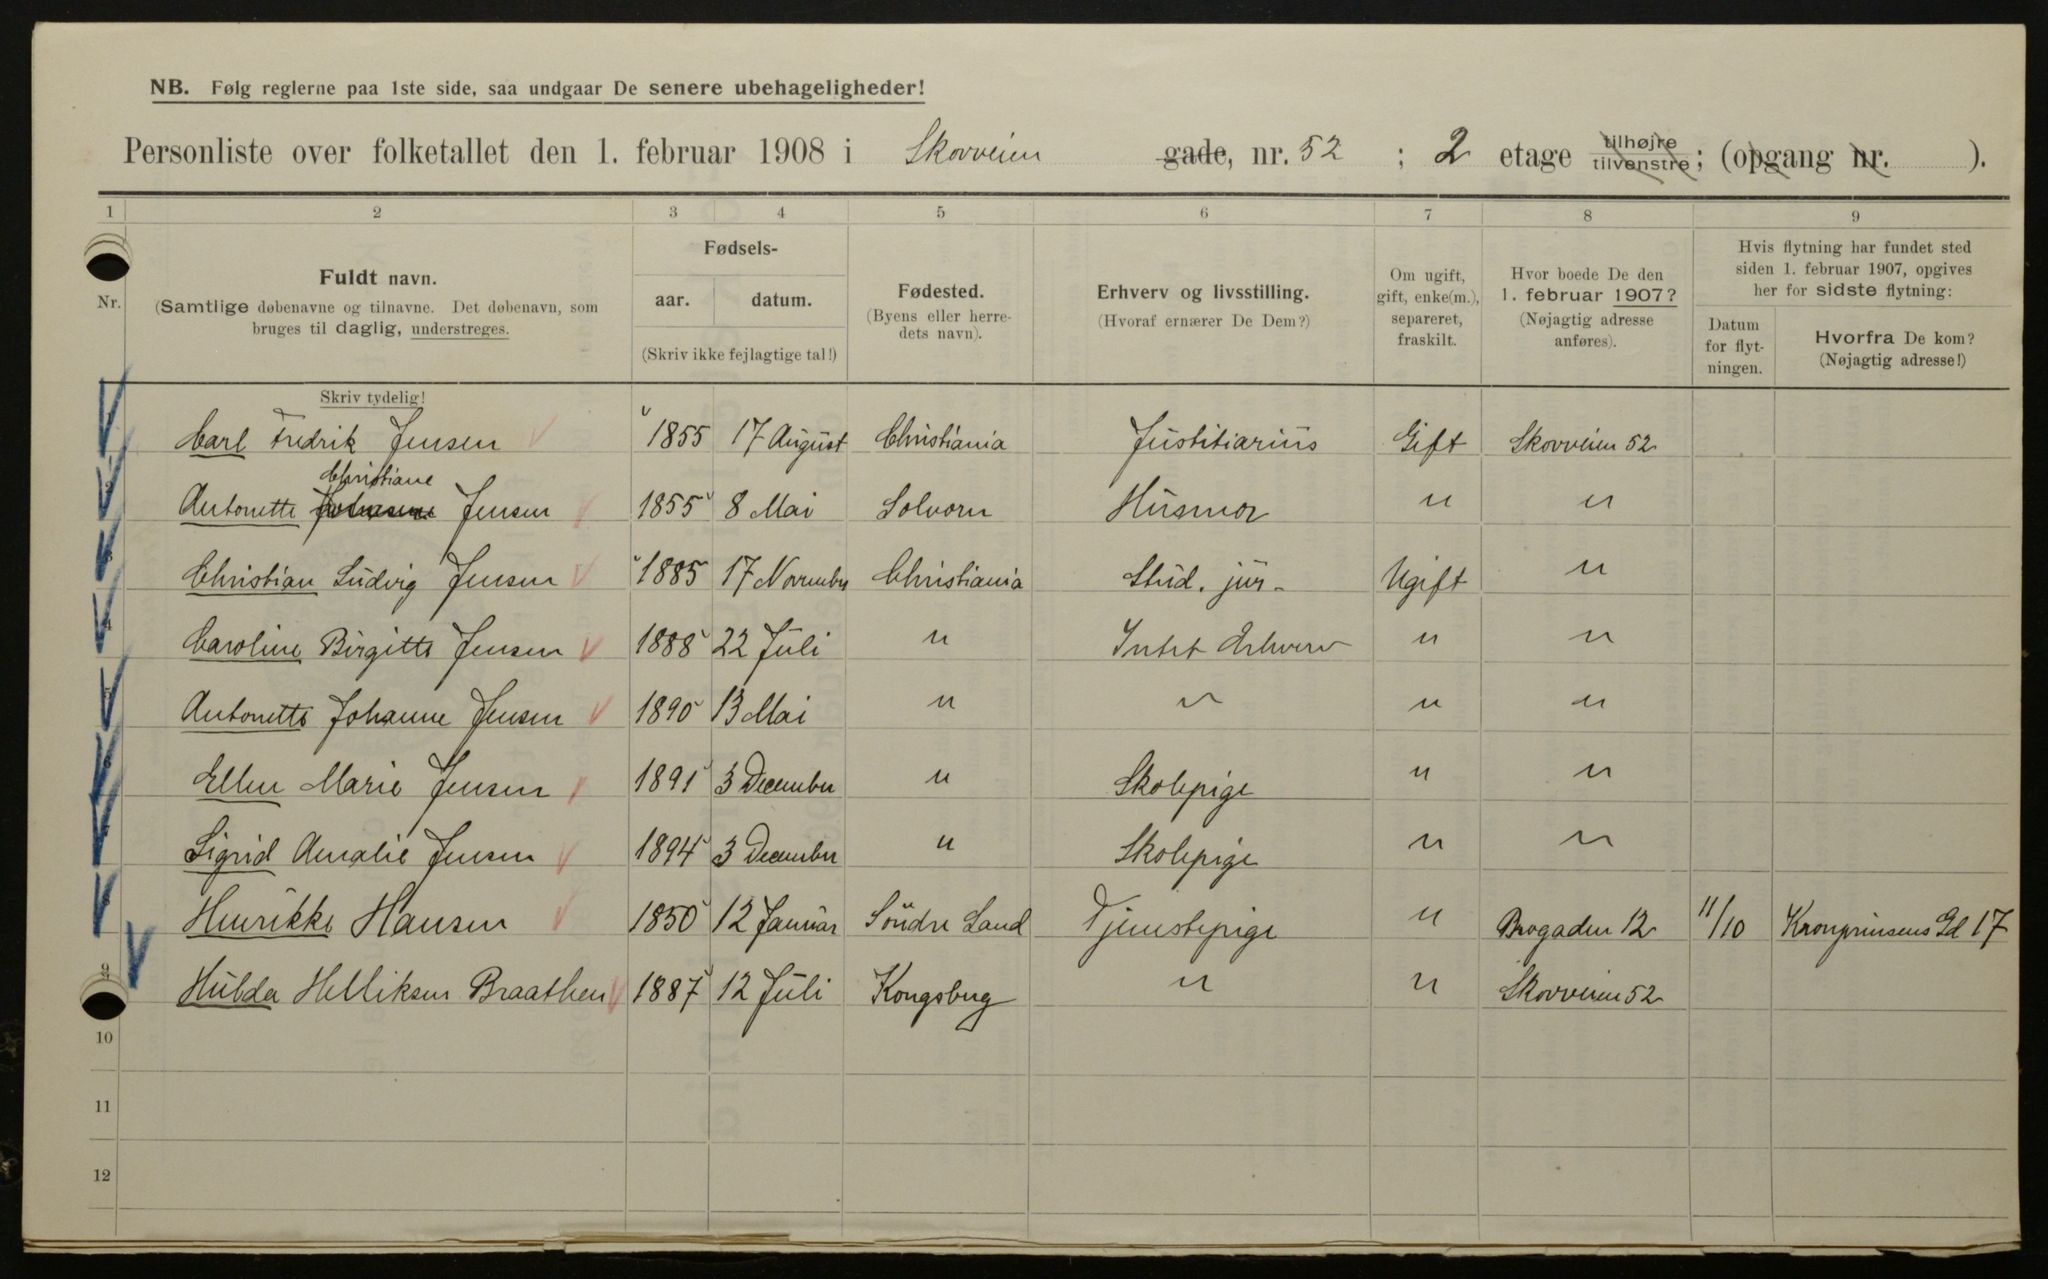 NB. Følg reglerne paa 1ste side, saa undgaar De senere ubehageligheder!
Personliste over folketallet den 1. februar 1908 i Skovveien gade, nr. 52 ; 2 etage tilhøjre tilvenstre; (opgang nr. ).
1 2 3 4 5 6 7 8 9
Nr.
Fuldt navn.
(Samtlige døbenavne og tilnavne. Det døbenavn, som
bruges til daglig, understreges.
Fødsels-
aar. datum.
(Skriv ikke fejlagtige tal!)
Fødested.
(Byens eller herre-
dets navn).
Erhverv og livsstilling.
(Hvoraf ernærer De Dem?)
Om ugift,
gift, enke(m.),
separeret,
fraskilt.
Hvor boede De den
1. februar 1907?
(Nøjagtig adresse
anføres).
Hvis flytning har fundet sted
siden 1. februar 1907, opgives
her for sidste flytning:
Datum
for flyt-
ningen.
Hvorfra De kom?
(Nøjagtig adresse!)
Skriv tydelig!
Carl Fredrik Jensen 1855 17 August Christiania Justitiarius Gift Skovveien 52
Christiane
Antonette Johanne Jensen 1855 8 Mai Solvorn Husmor " "
3 Christian Ludvig Jensen 1885 17 November Christiania Stud. jur. Ugift "
4 Caroline Birgitte Jensen 1888 22 Juli " Intet Erhverv " "
5 Antonette Johanne Jensen 1890 13 Mai " " " "
6 Ellen Marie Jensen 1891 3 December " Skolepige " "
7 Sigrid Amalie Jensen 1894 3 December " Skolepige " "
8 Henrikke Hansen 1850 12 Januar Söndre Land Tjenestepige " Brogaden 12 11/10 Kronprinsens Gd 17
9 Hulda Helliksen Braathen 1887 12 Juli Kongsberg " " Skovveien 52
10
11
12